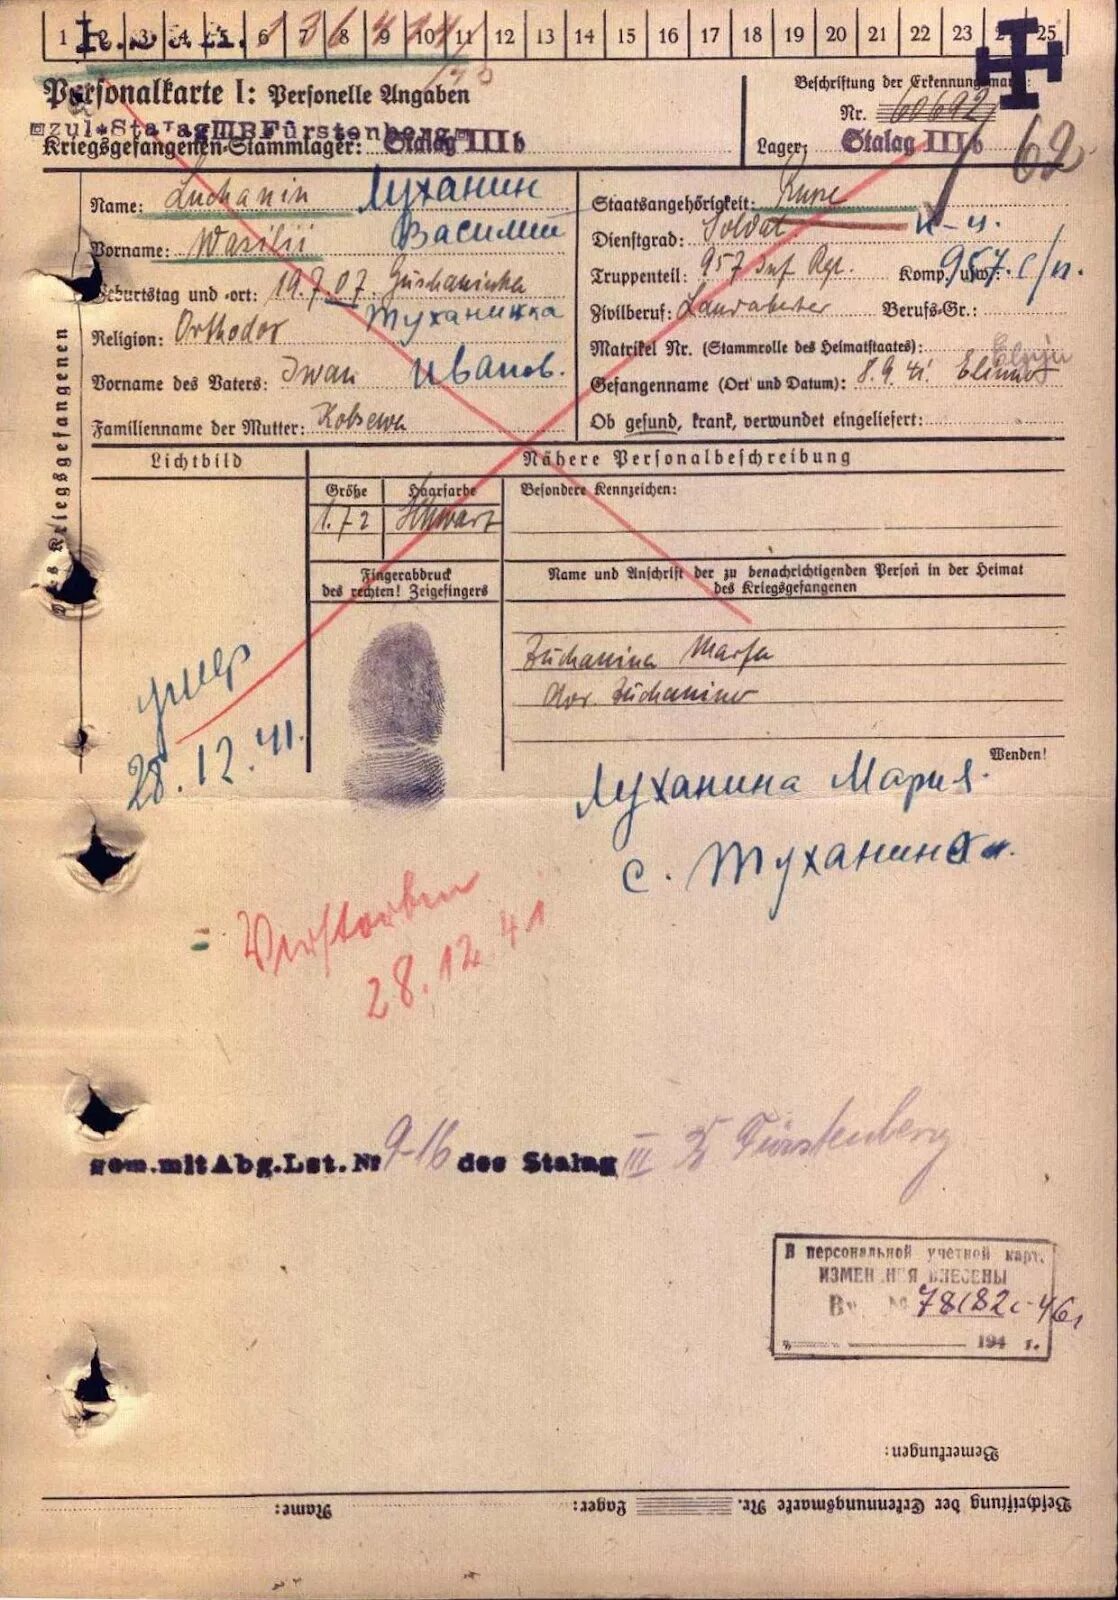 1 2 3 4 5 6 7 8 9 10 11 12 13 14 15 16 17 18 19 20 21 22 23 24 25
136424
Personalkarte I: Personelle Angaben
zul. Stalag III B Fürstenberg
Kriegsgefangenen-Stammlager: Stalag III b
Beschriftung der Erkennungsmarke:
Nr. 60692
Lager: Stalag III b
62
Des Kriegsgefangenen
Name: Luchanin Луханин
Vorname: Wasilii Василий
Geburtstag und -ort: 19.7.07.
Туханинка
Religion: Orthodox
Vorname des Vaters: Iwan Иванов.
Familienname der Mutter: Kobsewa
Staatsangehörigkeit: Russe
Dienstgrad: Soldat к-ц.
Truppenteil: 957 Inf Rgt. Komp. usw.: 957. с/п.
Zivilberuf: Landarbeiter Berufs-Gr.:
Matrikel Nr. (Stammrolle des Heimatstaates):
Gefangennahme (Ort und Datum): 8.9.41.
Ob gesund, krank, verwundet eingeliefert:
Lichtbild
Nähere Personalbeschreibung
Größe Haarfarbe Besondere Kennzeichen:
1.72 Schwarz
Fingerabdruck
des rechten! Zeigefingers
Name und Anschrift der zu benachrichtigenden Person in der Heimat
des Kriegsgefangenen
Luchanina Marfa
Wenden!
умер
28.12.41.
Луханина Мария.
с. Туханинка.
Verstorben
28.12.41
gem. mit Abg. Lst. Nr 9-16 des Stalag III B Fürstenberg
В персональной учетной карт.
ИЗМЕНЕНИЯ ВНЕСЕНЫ
Вх. № 78182с-46г
" 194 г.
Bemerkungen:
Beschriftung der Erkennungsmarke Nr. Lager: Name: